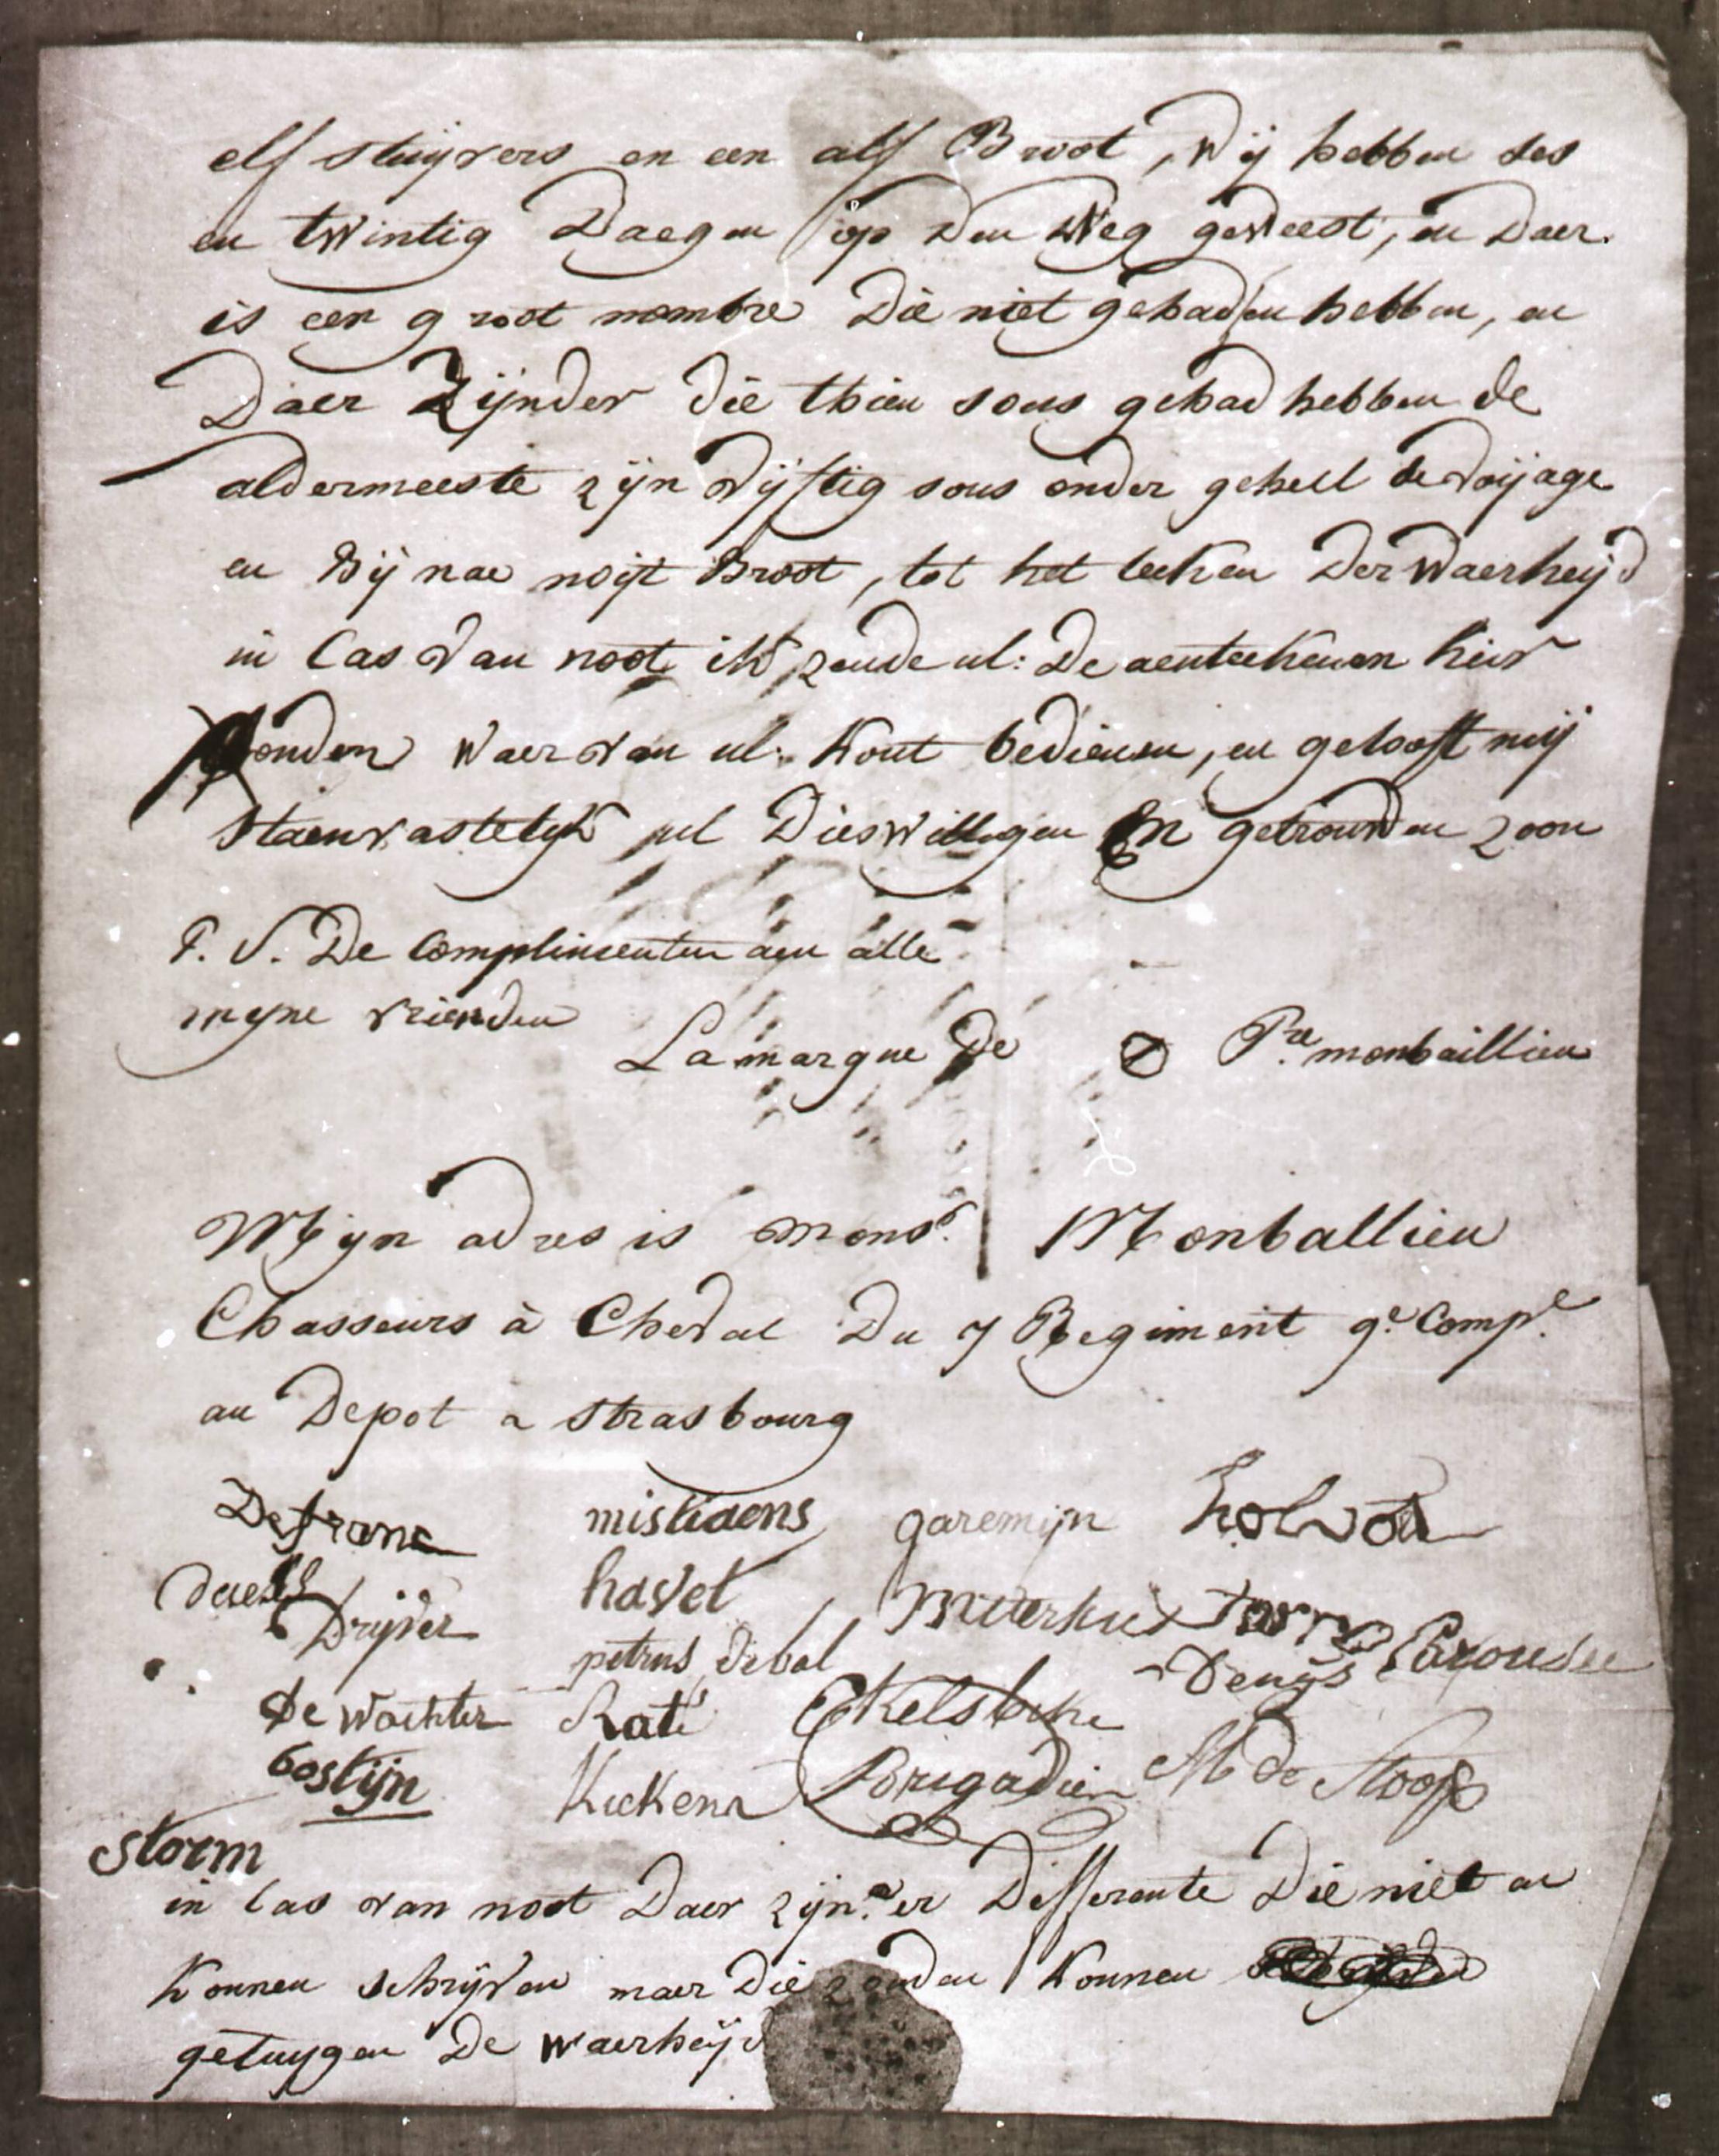 elf stuijvers en een alf Broot, wij hebben ses
en twintig Daegen op den Weg geweest, en daer
is een groot nombre die niet gehad en hebben, en
Daer Zijnder die thien sous gehad hebben de
aldermeeste zijn vijftig sous onder geheel de voijage
en Bij nae noijt Broot, tot het teeken der waerheijd
in Cas van noot ik zende ul: De aenteekenen hier
onder waer van ul: kont bedienen, en gelooft mij
staenvastelijk ul Dieswilligen En getrouwen zoon
P. S. De Complimenten aen alle
myne vrienden
La marque De Pre. monbaillieu
Mijn adres is Monsr. Monballieu
Chasseurs à Cheval Du 7 Regiment 9e. Compe.
au Depot a strasbourg
Defranc mistiaens garemijn holvoet
Drijver havet Denijs
petrus debal
De Wachter Raté Ekelsbeke
bostijn Kiekens Brigadier M de Stoop
storm
in Cas van noot Daer zijn.der Differente Die niet en
Konnen schrijven maer die zouden konnen
getuygen De waerheijd